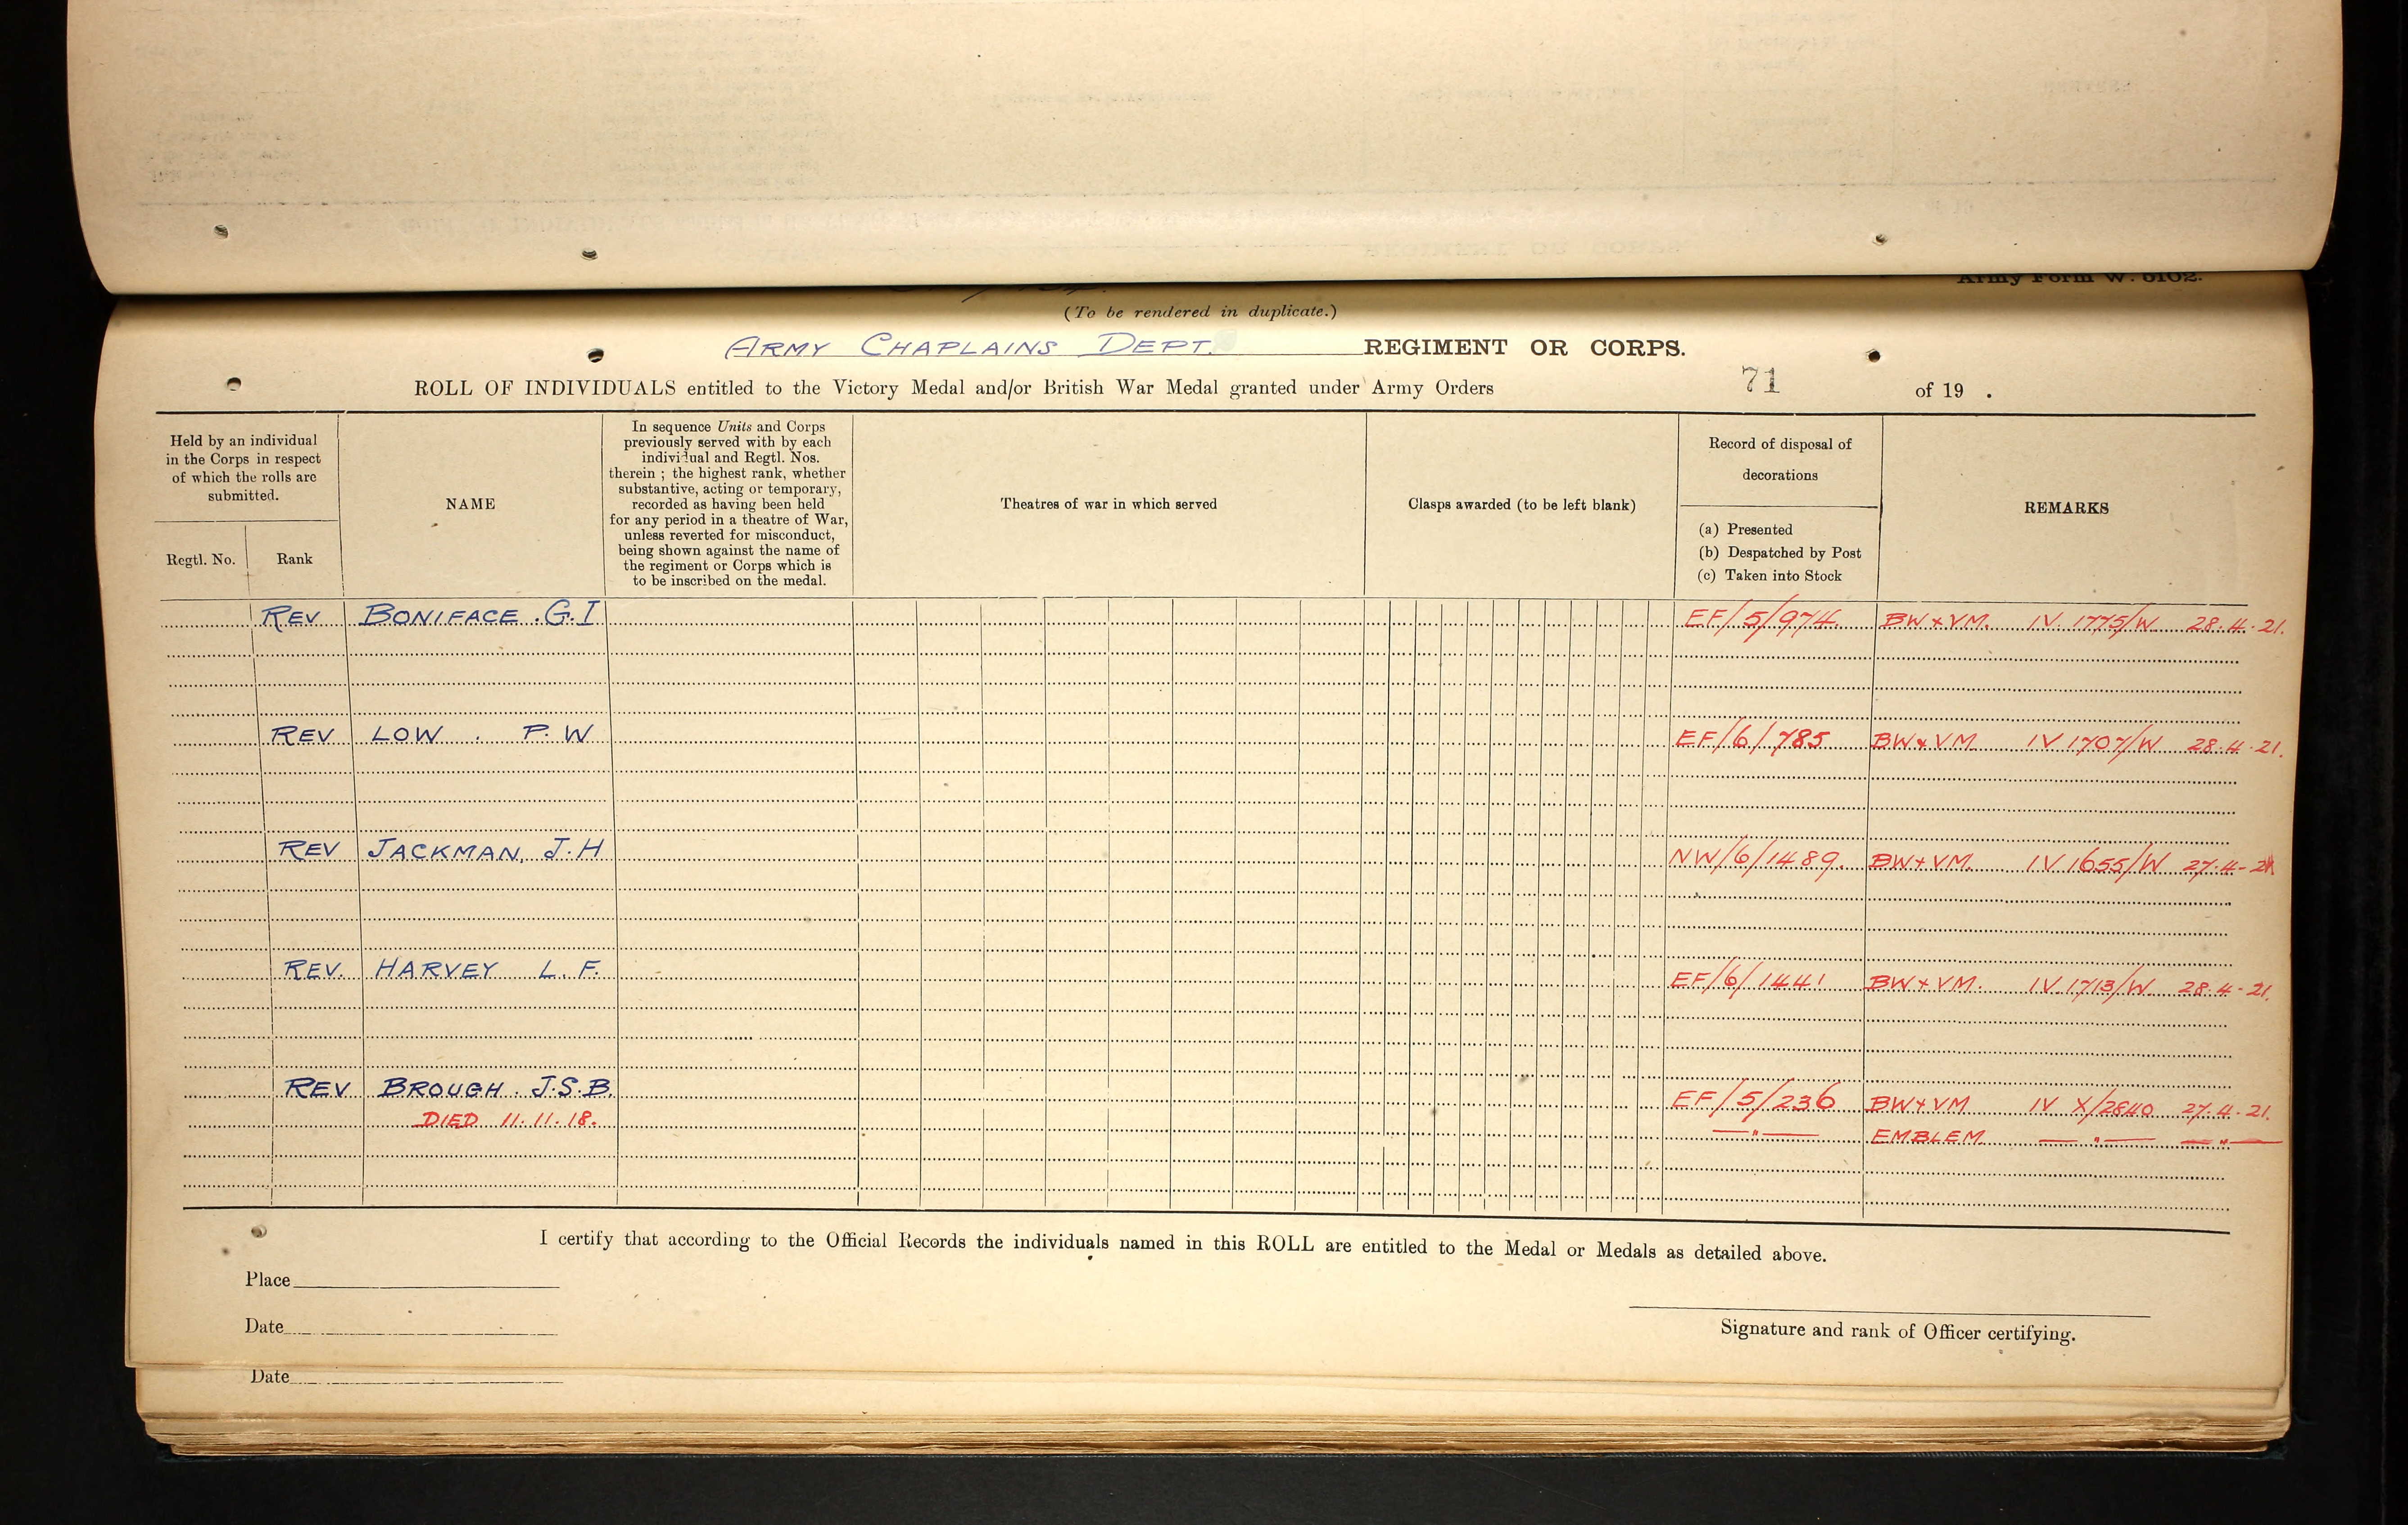 Army Form W. 5102.
(To be rendered in duplicate.)
ARMY CHAPLAINS DEPT. REGIMENT OR CORPS.
71
ROLL OF INDIVIDUALS entitled to the Victory Medal and/or British War Medal granted under Army Orders of 19 .
Held by an individual
in the Corps in respect
of which the rolls are
submitted.
Regtl. No.
Rank
NAME
In sequence Units and Corps
previously served with by each
individual and Regtl. Nos.
therein ; the highest rank, whether
substantive, acting or temporary,
recorded as having been held
for any period in a theatre of War,
unless reverted for misconduct,
being shown against the name of
the regiment or Corps which is
to be inscribed on the medal.
Theatres of war in which served
Clasps awarded (to be left blank)
Record of disposal of
decorations
(a) Presented
(b) Despatched by Post
(c) Taken into Stock
REMARKS
REV BONIFACE . G. I EF/5/974. BW + VM. IV 1775/W 28.4.21.
REV LOW . P. W EF/6/785 BW + VM IV 1707/W 28.4.21.
REV JACKMAN, J. H NW/6/1489. BW + VM. IV 1655/W 27.4-21
REV. HARVEY L. F. EF/6/1441 BW + VM. IV 1713/W 28.4-21.
REV BROUGH . J.S.B. EF/5/236 BW + VM IV X/2840 27.4.21.
DIED 11.11.18. — " — EMBLEM — " — — " —
I certify that according to the Official Records the individuals named in this ROLL are entitled to the Medal or Medals as detailed above.
Place
Date
Signature and rank of Officer certifying.
Date